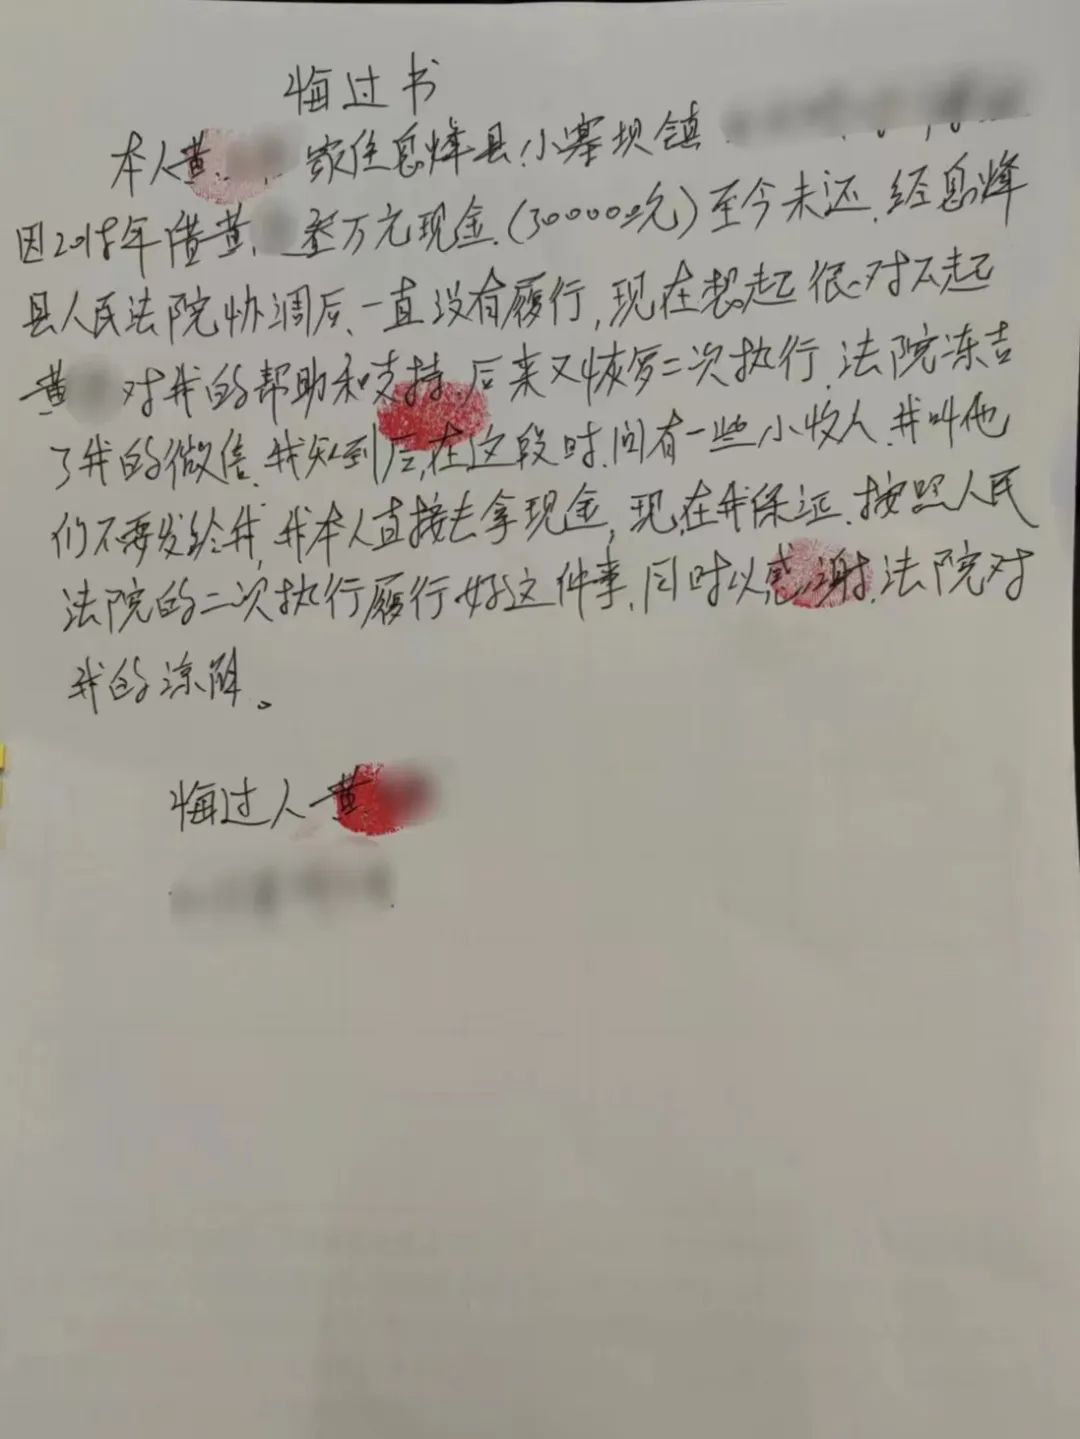 悔过书
本人黄 家住息烽县小寨坝镇
因2018年借黄 叁万元现金.(30000.00元)至今未还.经息烽
县人民法院协调后、一直没有履行,现在想起很对不起
黄 对我的帮助和支持.后来又恢复二次执行.法院冻吉
了我的微信.我知到后,在这段时.间有一些小收人.我叫他
们不要发给我,我本人直接去拿现金,现在我保证.按照人民
法院的二次执行履行好这件事,同时以感谢.法院对
我的凉解。
悔过人黄